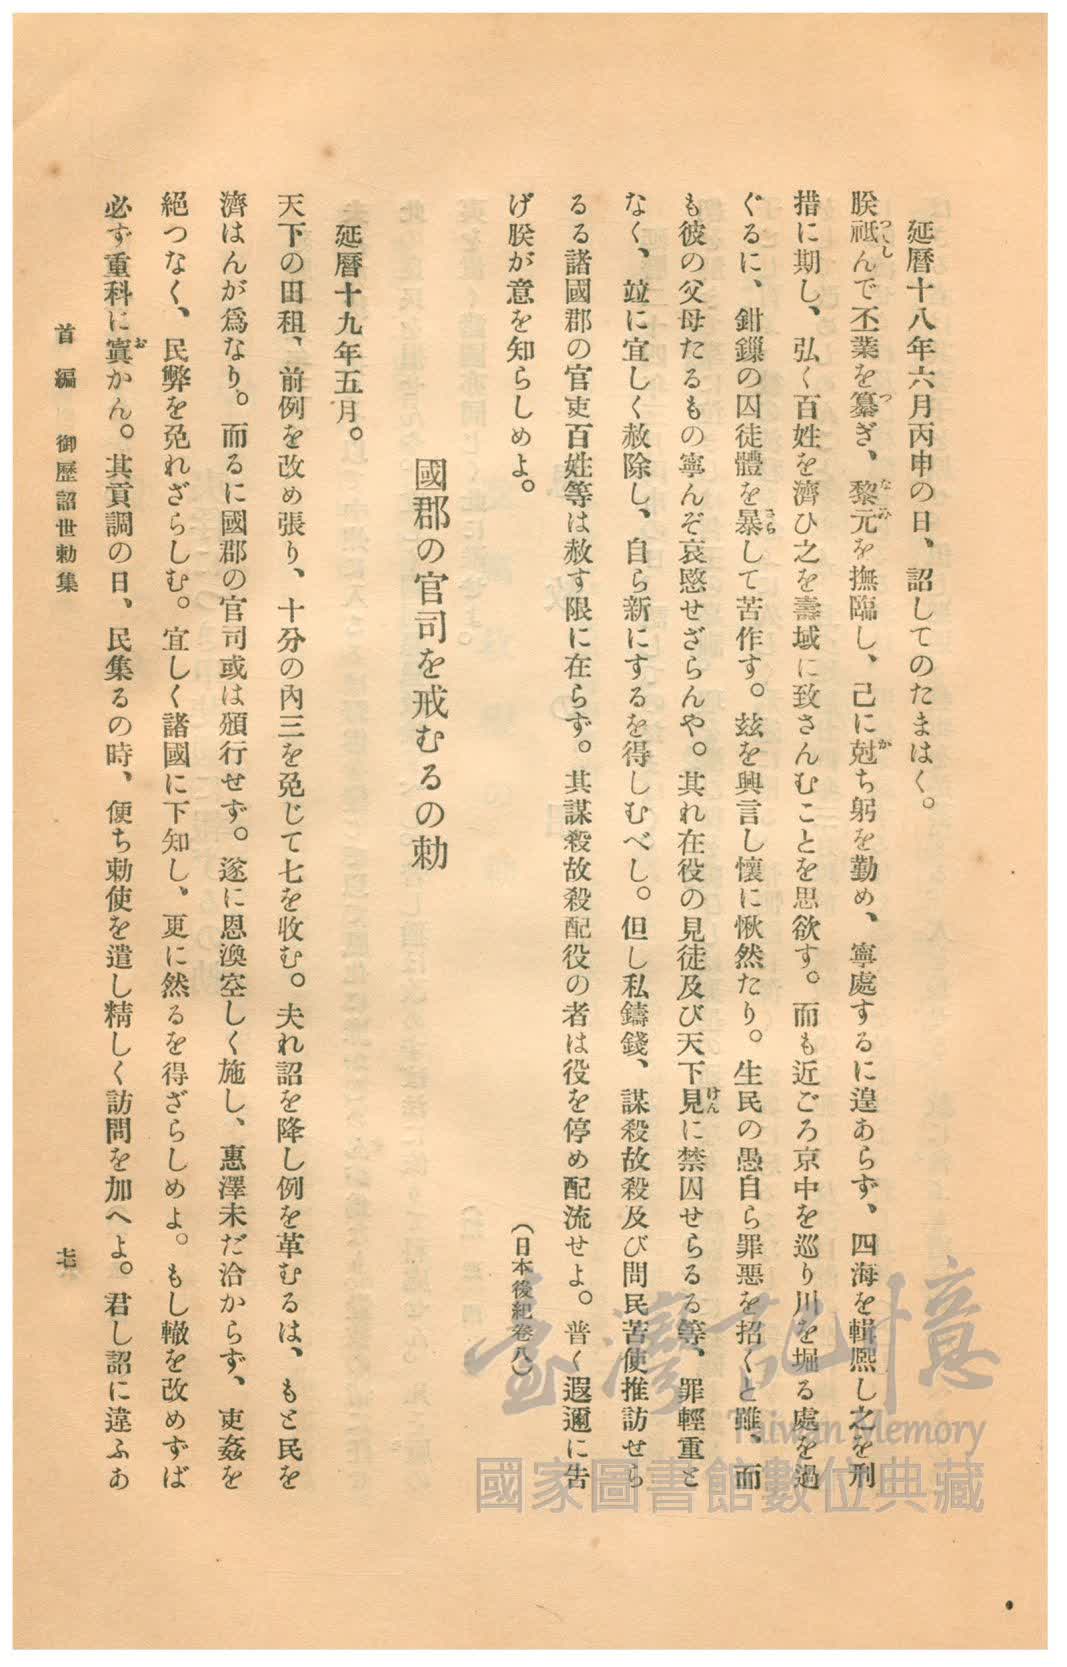 延曆十八年六月丙申の日、詔してのたまはく。
朕祗んで丕業を纂ぎ、黎元を撫臨し、己に尅ち躬を勤め、寧處するに遑あらず、四海を輯熙し之を刑
措に期し、弘く百姓を濟ひ之を壽域に致さんむことを思欲す。而も近ごろ京中を巡り川を堀る處を過
ぐるに、鉗鏁の囚徒體を暴して苦作す。玆を興言し懷に愀然たり。生民の愚自ら罪惡を招くと雖、而
も彼の父母たるもの寧んぞ哀愍せざらんや。其れ在役の見徒及び天下見に禁囚せらるる等、罪輕重と
なく、竝に宜しく赦除し、自ら新にするを得しむべし。但し私鑄錢、謀殺故殺及び問民苦使推訪せら
るる諸國郡の官吏百姓等は赦す限に在らず。其謀殺故殺配役の者は役を停め配流せよ。普く遐邇に告
げ朕が意を知らしめよ。
(日本後紀卷八)
國郡の官司を戒むるの勅
延曆十九年五月。
天下の田租、前例を改め張り、十分の內三を免じて七を收む。夫れ詔を降し例を革むるは、もと民を
濟はんが爲なり。而るに國郡の官司或は頒行せず。遂に恩渙空しく施し、惠澤未だ洽からず、吏姦を
絕つなく、民弊を免れざらしむ。宜しく諸國に下知し、更に然るを得ざらしめよ。もし轍を改めずば
必ず重科に寘かん。其貢調の日、民集るの時、便ち勅使を遣し精しく訪問を加へよ。君し詔に違ふあ
首編 御歷詔世勅集
七
臺灣記憶
Taiwan Memory
國家圖書館數位典藏